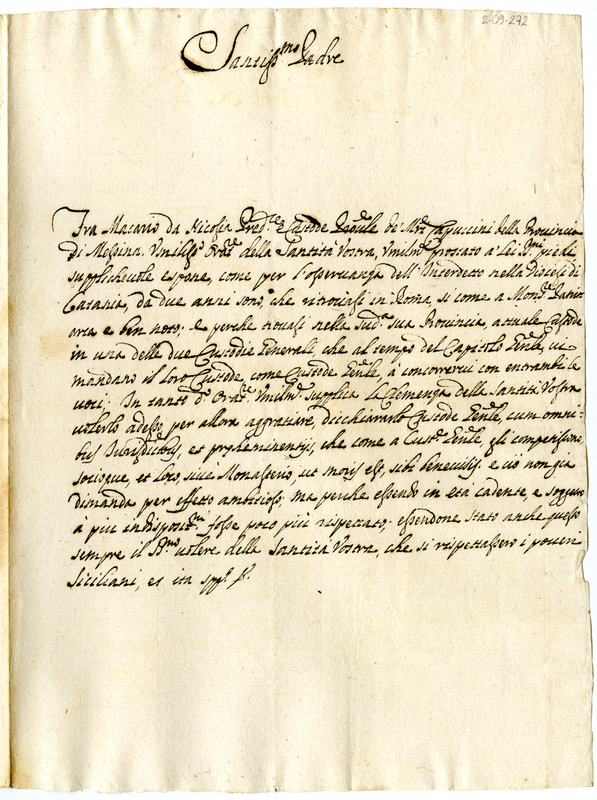 2-09-272
Santiss.mo Padre
Fra Macario da Nicosia Pred.re e Custode Prov.le de' Min.ri Capuccini della Provincia
di Messina, Umiliss.o Orat.e della Santità Vostra, Umilm.e prostrato à Lei S.mi piedi
supplichevole espone, come per l'osservanza dell'Interdetto nella Diocesi di
Catania, da due anni sono, che ritrovasi in Roma, si come à Mons.r Patri
arca e ben noto; e perche trovasi nella sud.a sua Provincia, attuale Custode
in una delle due Custodie Generali, che al tempo del Capitolo Gen.le, vi
mandano il loro Custode, come Custode Gen.le, à concorrervi con entrambi le
voci: In tanto d.o Orat.e Umilm.e supplica la Clemenza della Santità Vostra
volerlo adesso per allora aggratiare, dicchiararlo Custode Gen.le, cum omni-
bus Jurisdictibus, et preheminentijs, che come a Cust.e Gen.le, gli competiscono,
Socioque, et loco, sive Monasterio, ut moris est, sibi benevisis. e ciò non già
dimanda per effetto ambitioso, ma perche essendo in età cadente, e soggetto
à più indisposit.ni fosse poco più rispettato; essendone stato anche questo
sempre il S.mo volere della Santità Vostra, che si rispettassero i poveri
Siciliani, et ita supp.t